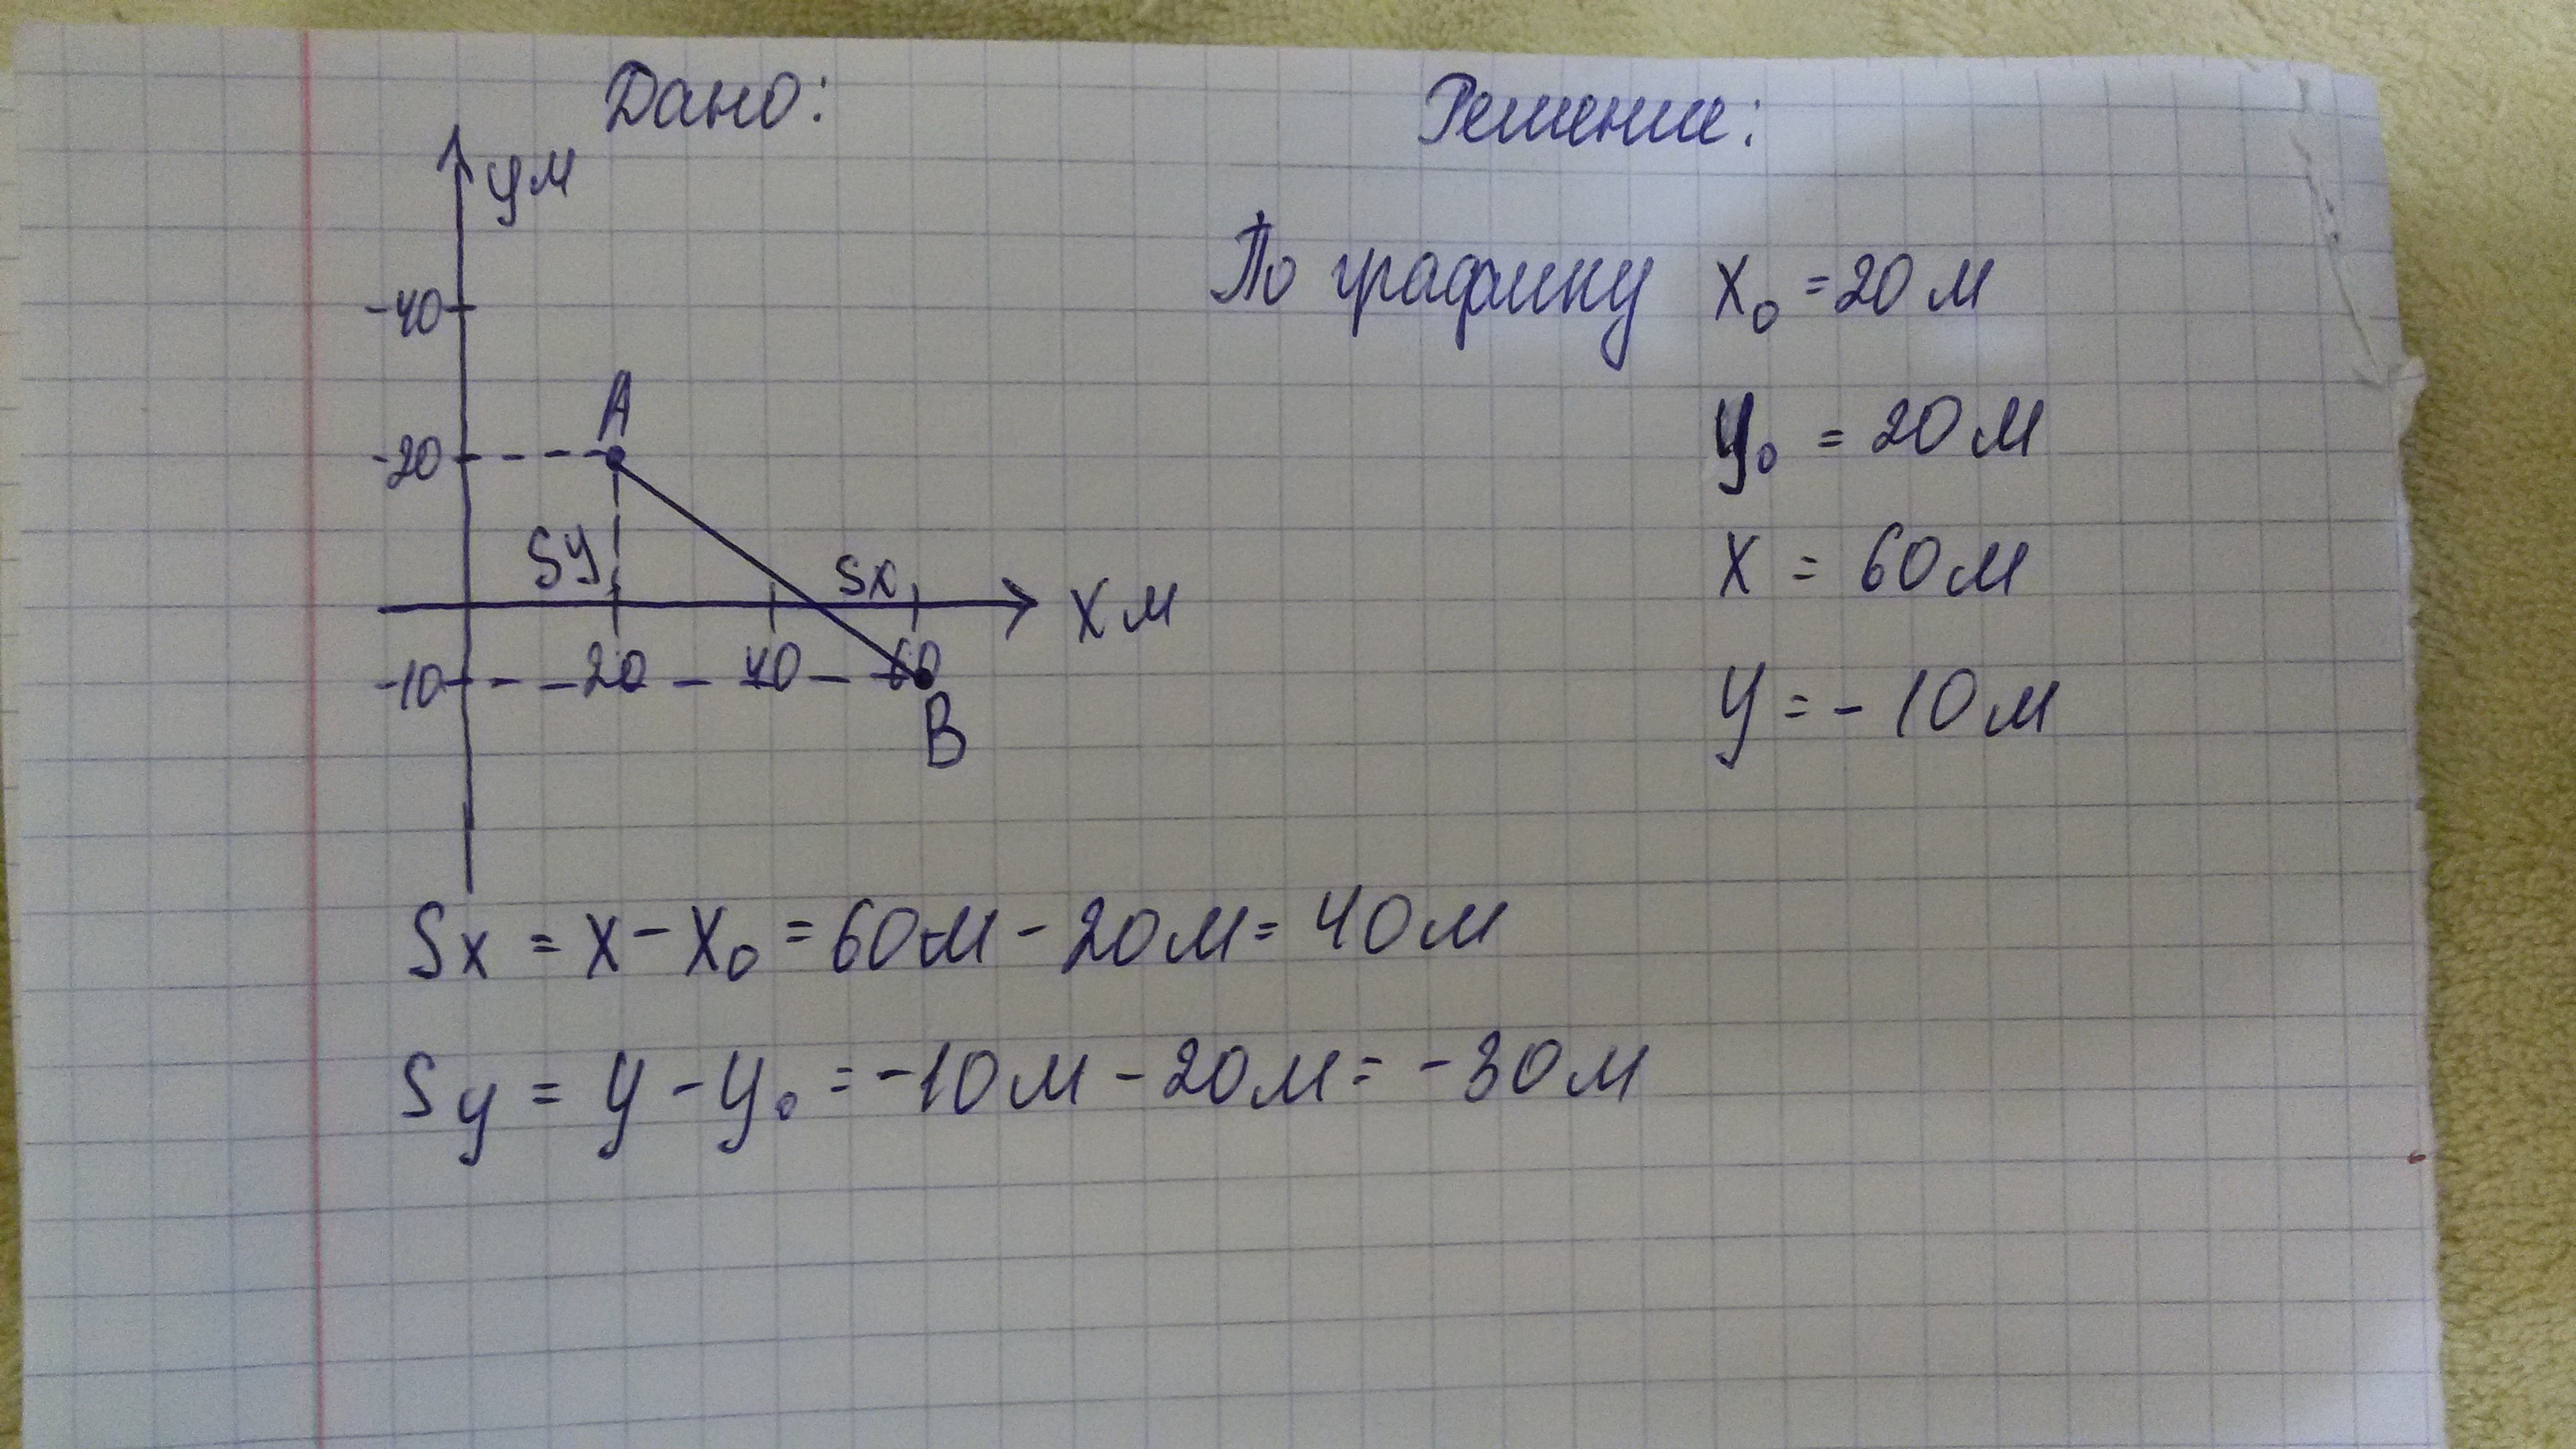 Дано:
Решение:
y м
-40
A
-20
Sy
Sx
x м
-10
20
40
60
B
По графику x₀ = 20 м
y₀ = 20 м
x = 60 м
y = - 10 м
Sx = x - x₀ = 60 м - 20 м = 40 м
Sy = y - y₀ = -10 м - 20 м = -30 м